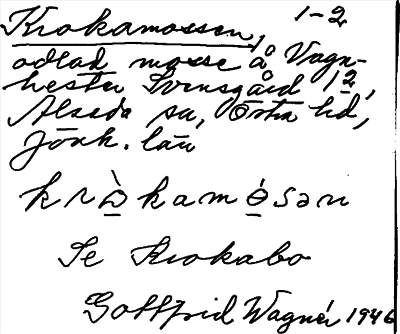 Krokamossen, 1-2
odlad mosse å Vagn-
hester Svensgård 1 2,
Alseda sn, Östra hd,
Jönk. län
krɔ̀kamósən
Se Krokabo
Gottfrid Wagnér 1946